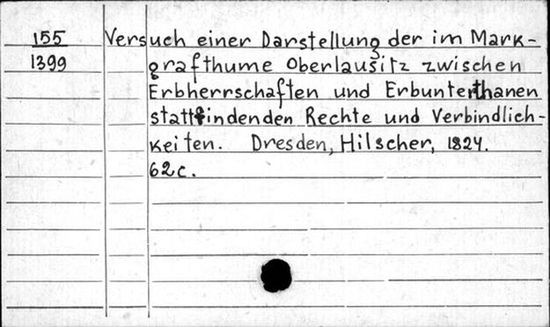 155 Versuch einer Darstellung der im Mark-
1399 grafthume Oberlausitz zwischen
Erbherrschaften und Erbunterthanen
stattfindenden Rechte und Verbindlich-
keiten. Dresden, Hilscher, 1824.
62c.